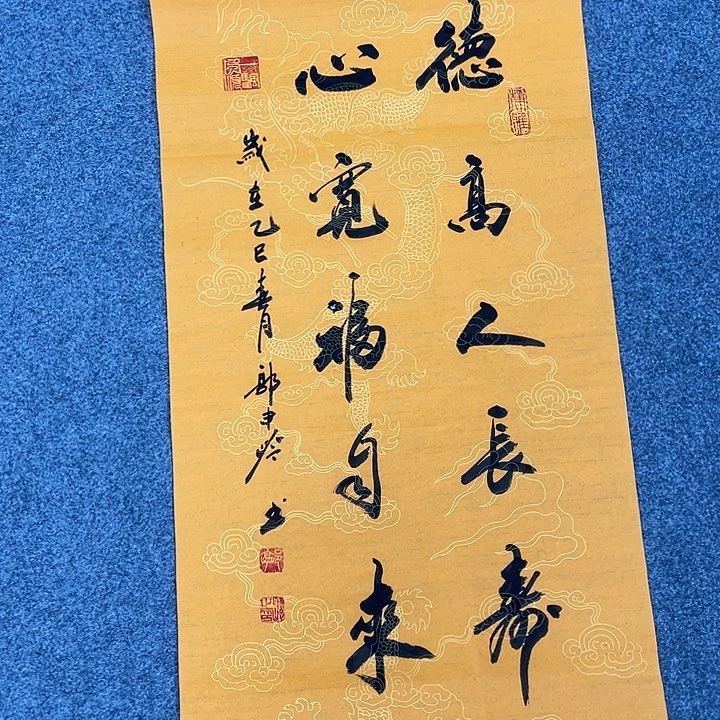 德高人長壽
心寬福自來
歲在乙巳春月 郎中岭 书